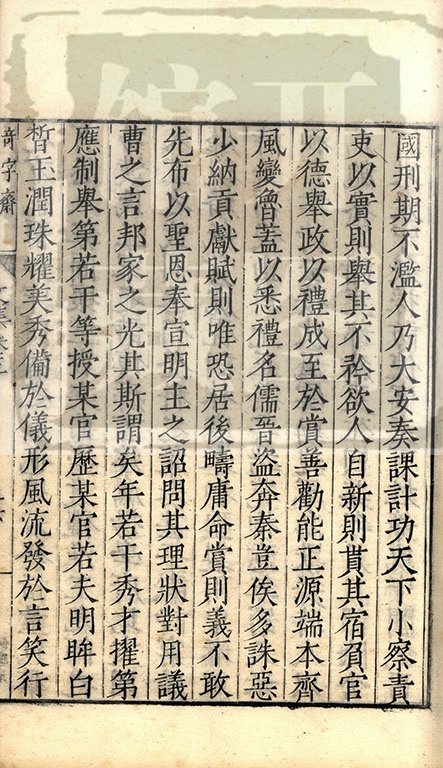 國刑期不濫人乃大安奏課計功天下小察責
吏以實則舉其不衿欲人自新則貰其宿負官
以德舉政以禮成至於賞善勸能正源端本齊
風變魯蓋以悉禮名儒晉盜奔秦豈俟多誅惡
少納貢獻賦則唯恐居後疇庸命賞則義不敢
先布以聖恩奉宣明主之詔問其理狀對用議
曹之言邦家之光其斯謂矣年若干秀才擢第
應制舉第若干等授某官歷某官若夫明眸白
皙玉潤珠耀美秀備於儀形風流發於言笑行
奇字齋